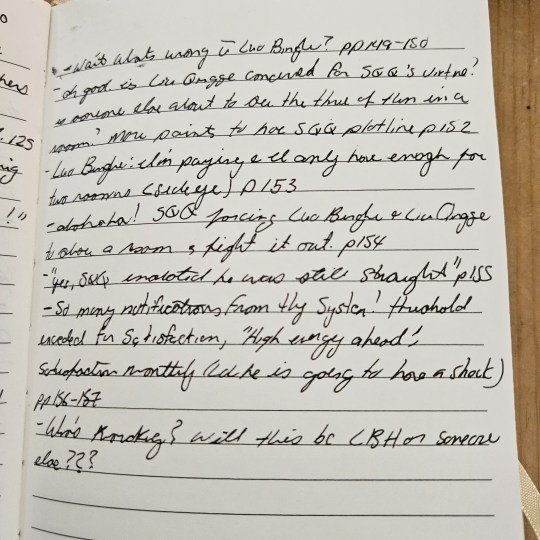 o
hers
. 125
ing
!"
- Wait whats wrong c̄ Luo Binghe? pp149-150
- oh god is Liu Qingge concerned for SQQ's virtue?
is someone else about to see the three of them in a
room? more points to hoe SQQ plotline p152
- Luo Binghe: I'm paying & I only have enough for
two rooms (sideye) p153
- ahahaha! SQQ forcing Luo Binghe & Liu Qingge
to share a room & fight it out. p154
- "yes, SQQ insisted he was still straight" p155
- So many notifications from the System! threshold
exceeded for Satisfaction, "High energy ahead",
satisfaction monthly he is going to have a shock)
pp156-157
- Who's Knocking? Will this be LBH or someone
else???